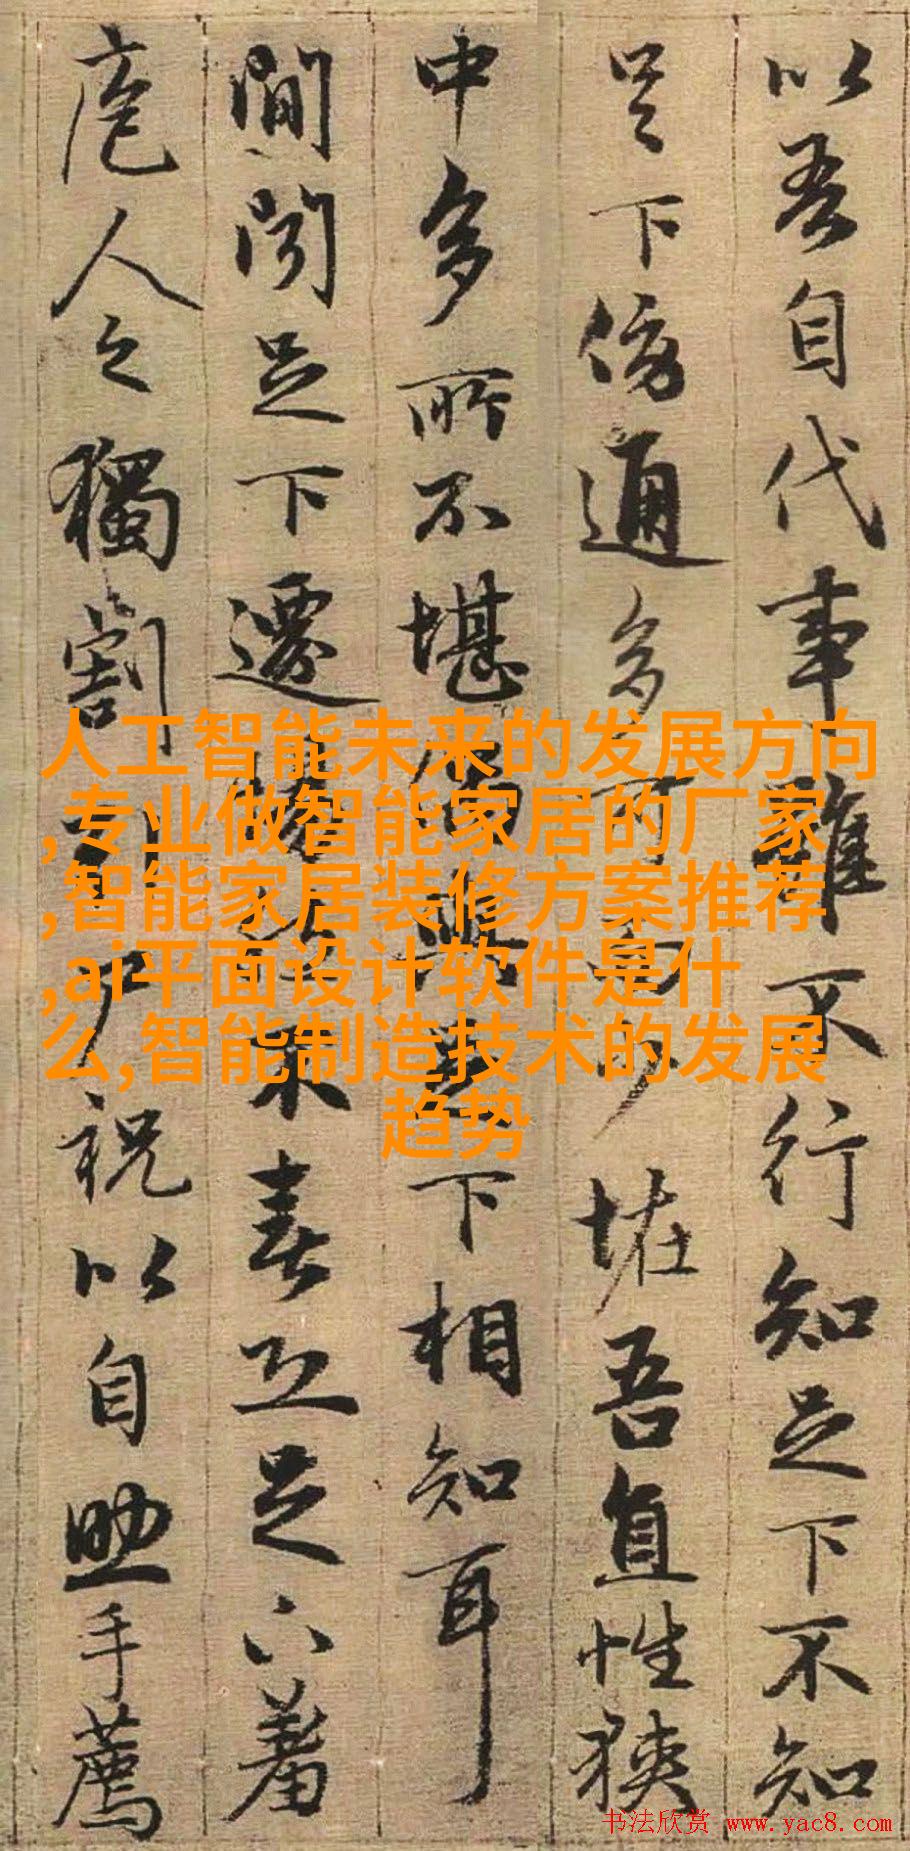 以吾自代事雖不行知足下不知
足下傍通多可而少恠吾直性狹
中多所不堪偶與足下相知耳
間聞足下遷惕然不喜恐足下羞
庖人之獨割引尸祝以自助手薦
人工智能未来的发展方向
,专业做智能家居的厂家
,智能家居装修方案推荐
,ai平面设计软件是什
么,智能制造技术的发展
趋势
书法欣赏 www.yac8.com